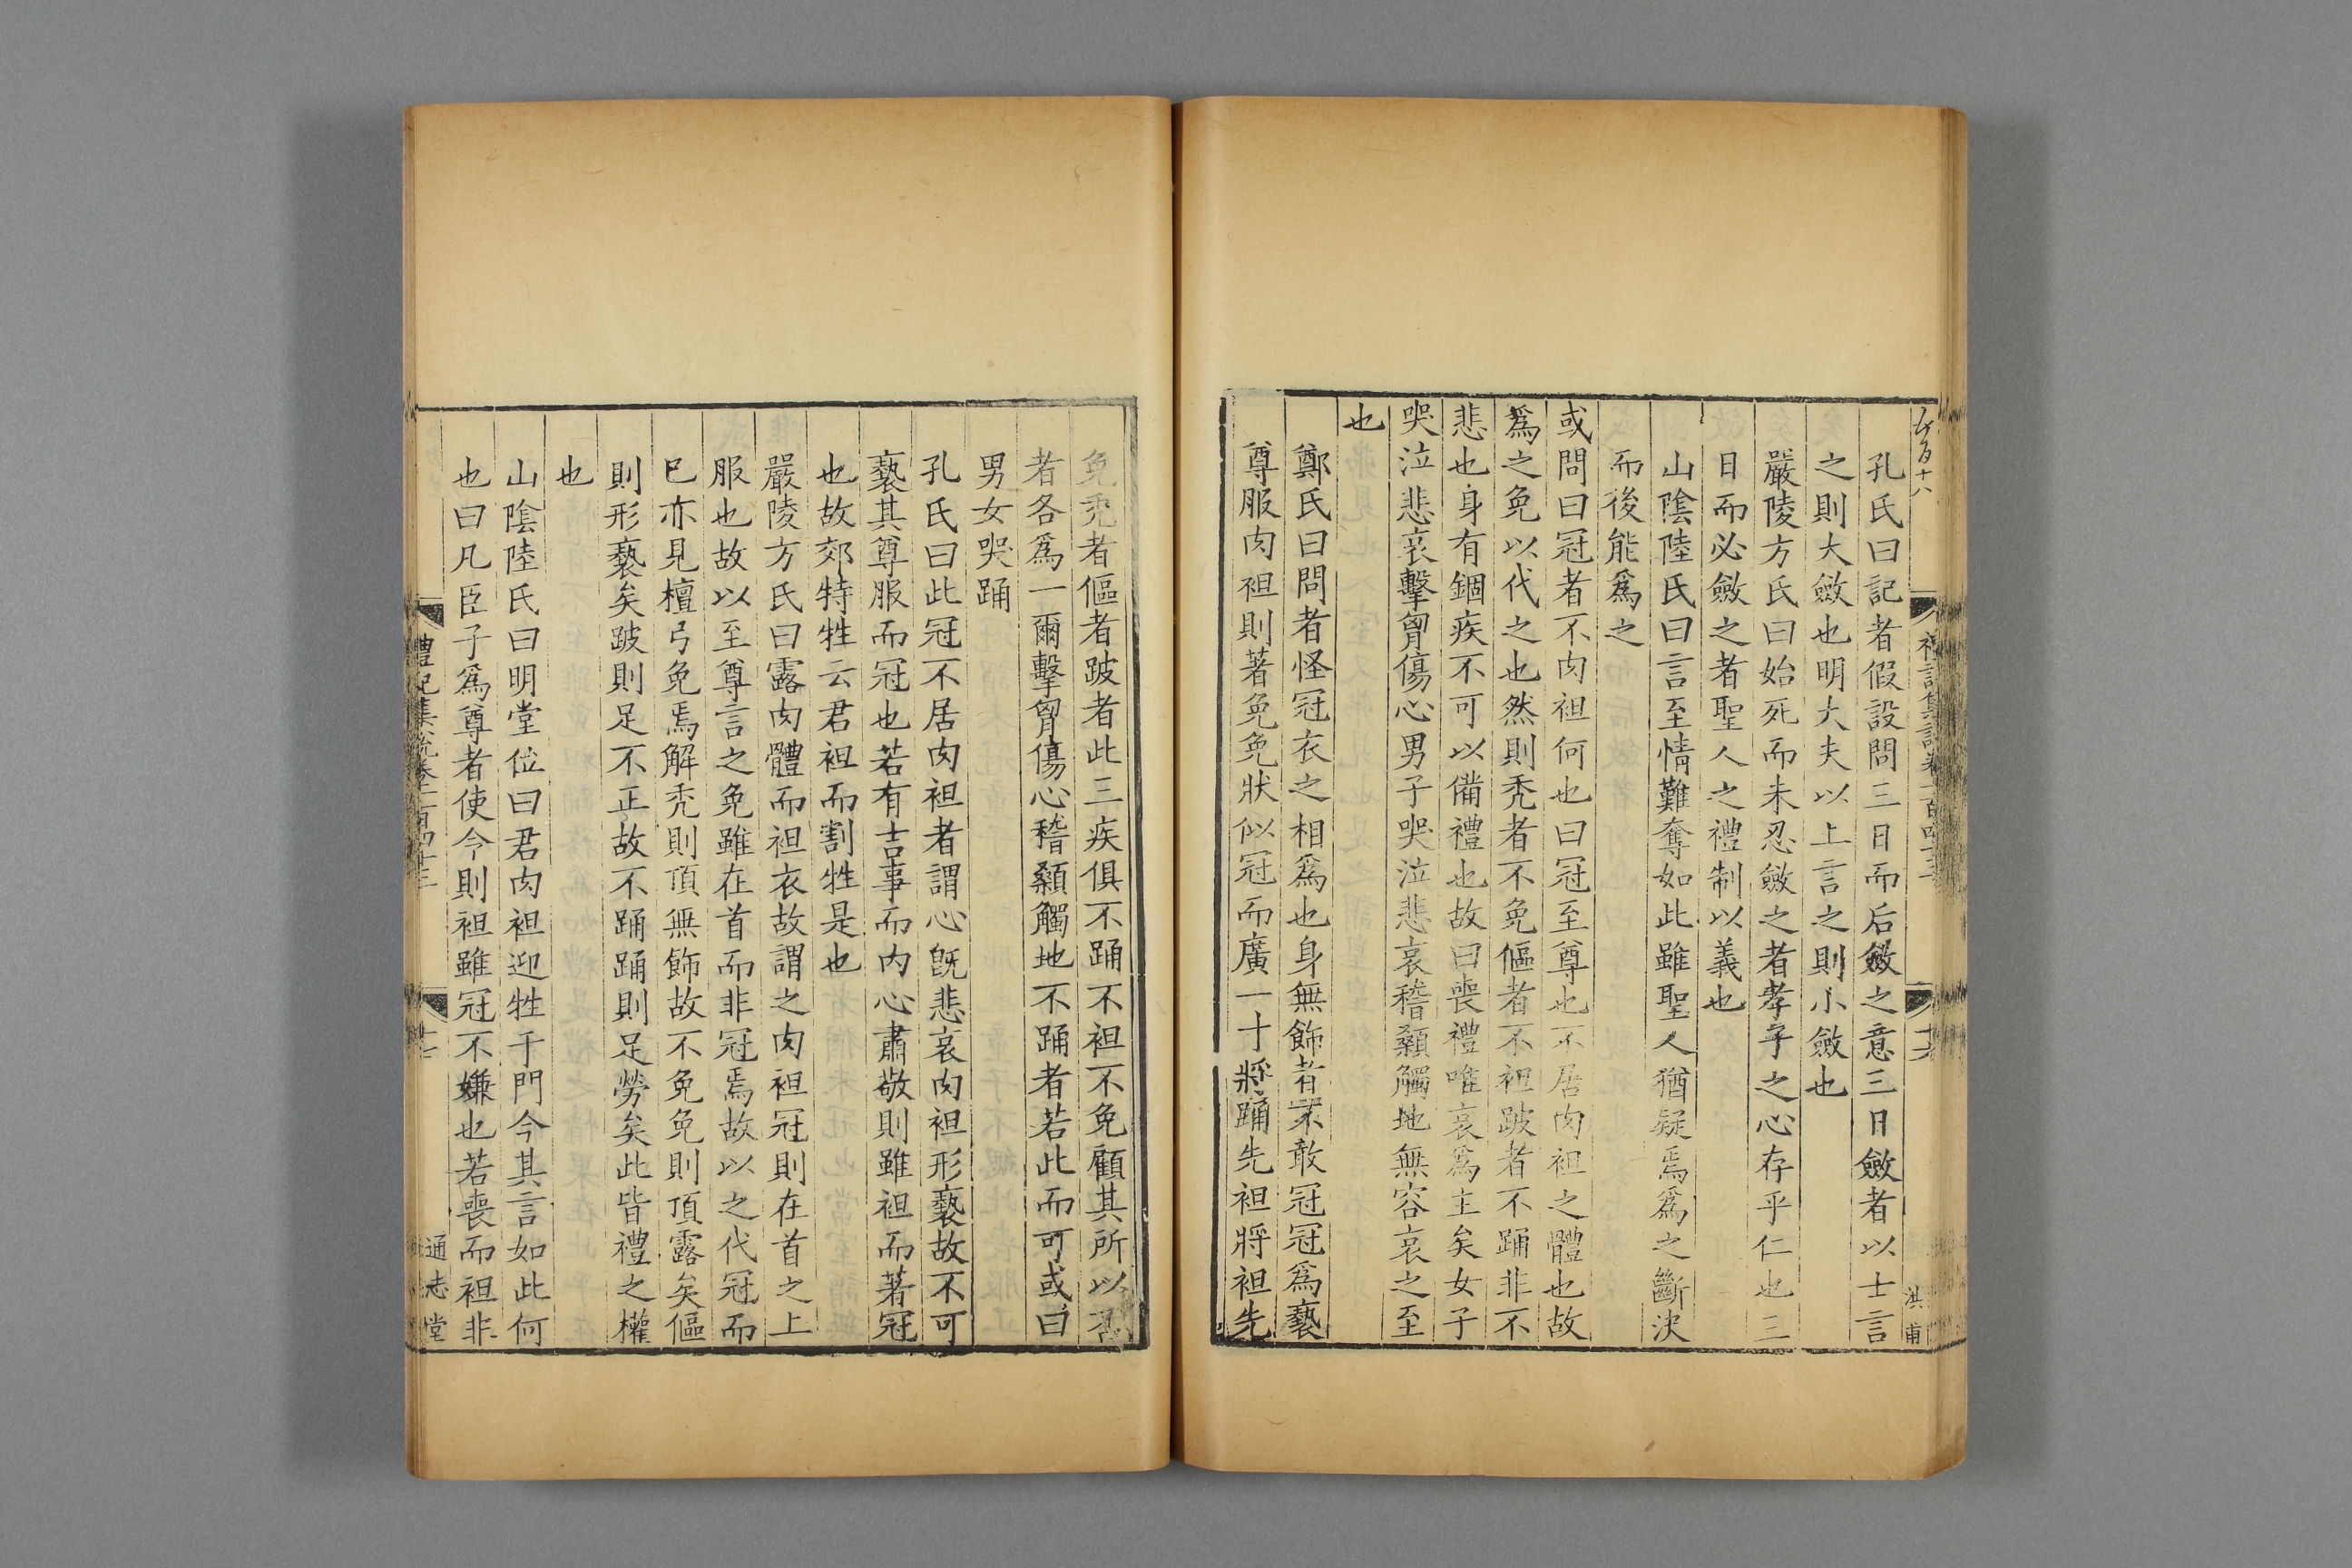 孔氏曰記者假設問三日而后斂之意三日斂者以士言
之則大斂也明大夫以上言之則小斂也
嚴陵方氏曰始死而未忍斂之者孝子之心存乎仁也三
日而必斂之者聖人之禮制以義也
山陰陸氏曰言至情難奪如此雖聖人猶疑焉爲之斷決
而後能爲之
或問曰冠者不肉袒何也曰冠至尊也不居肉袒之體也故
爲之免以代之也然則禿者不免傴者不袒跛者不踊非不
悲也身有錮疾不可以備禮也故曰喪禮唯哀爲主矣女子
哭泣悲哀擊胷傷心男子哭泣悲哀稽顙觸地無容哀之至
也
鄭氏曰問者怪冠衣之相爲也身無飾者不敢冠冠爲褻
尊服肉袒則著免免狀似冠而廣一寸將踊先袒將袒先
免禿者傴者跛者此三疾俱不踊不袒不免顧其所以否
者各爲一爾擊胷傷心稽顙觸地不踊者若此而可或曰
男女哭踊
孔氏曰此冠不居肉袒者謂心旣悲哀肉袒形褻故不可
褻其尊服而冠也若有吉事而内心肅敬則雖袒而著冠
也故郊特牲云君袒而割牲是也
嚴陵方氏曰露肉體而袒衣故謂之肉袒冠則在首之上
服也故以至尊言之免雖在首而非冠焉故以之代冠而
已亦見檀弓免焉解禿則頂無飾故不免免則頂露矣傴
則形褻矣跛則足不正故不踊踊則足勞矣此皆禮之權
也
山陰陸氏曰明堂位曰君肉袒迎牲于門今其言如此何
也曰凡臣子爲尊者使令則袒雖冠不嫌也若喪而袒非
禮記集說卷一百四十三
十七
通志堂